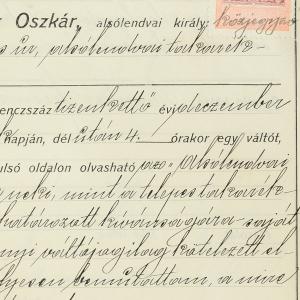 r Oszkár, alsólendvai király: közjegyző
s úr, alsólendvai takarék-
enczszáz tizenkettő évi deczember
napján, dél után 4. órakor egy váltót,
ulsó oldalon olvasható az „Alsólendvai
nek, mint a telepes takarék
határozott kívánságára saját
nyi váltójogilag kötelezett el
lyesen bemutattam, a mire